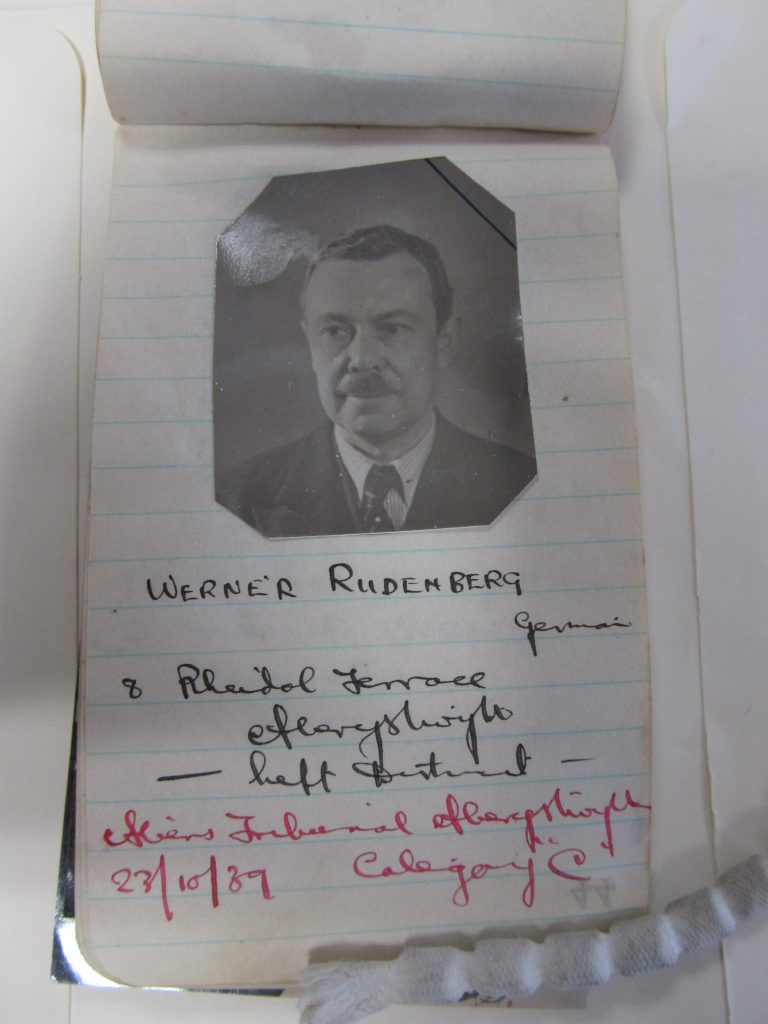 WERNER RUDENBERG
German
8 Rheidol Terrace
Aberystwyth
— Left District —
Aliens Tribunal Aberystwyth
23/10/39 Category "C"
44